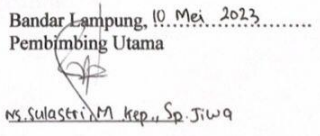 Bandar Lampung, 10 Mei 2023
Pembimbing Utama
Ns. Sulastri, M. Kep., Sp. Jiwa